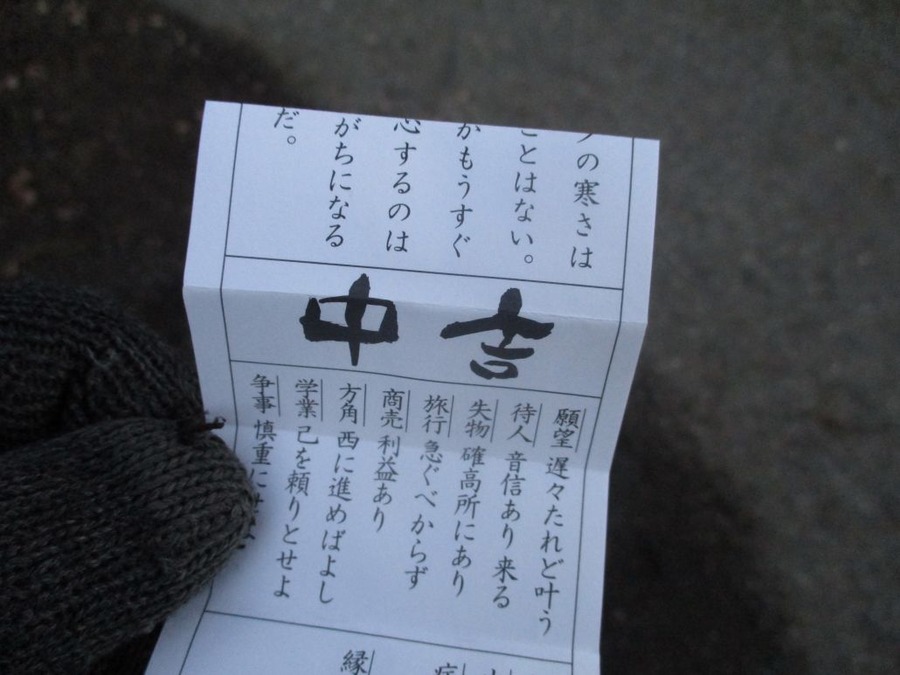 の寒さは
ことはない。
かもうすぐ
心するのは
がちになる
だ。
中吉
願望 遅々たれど叶う
待人 音信あり来る
失物 確高所にあり
旅行 急ぐべからず
商売 利益あり
方角 西に進めばよし
学業 己を頼りとせよ
争事 慎重に
縁